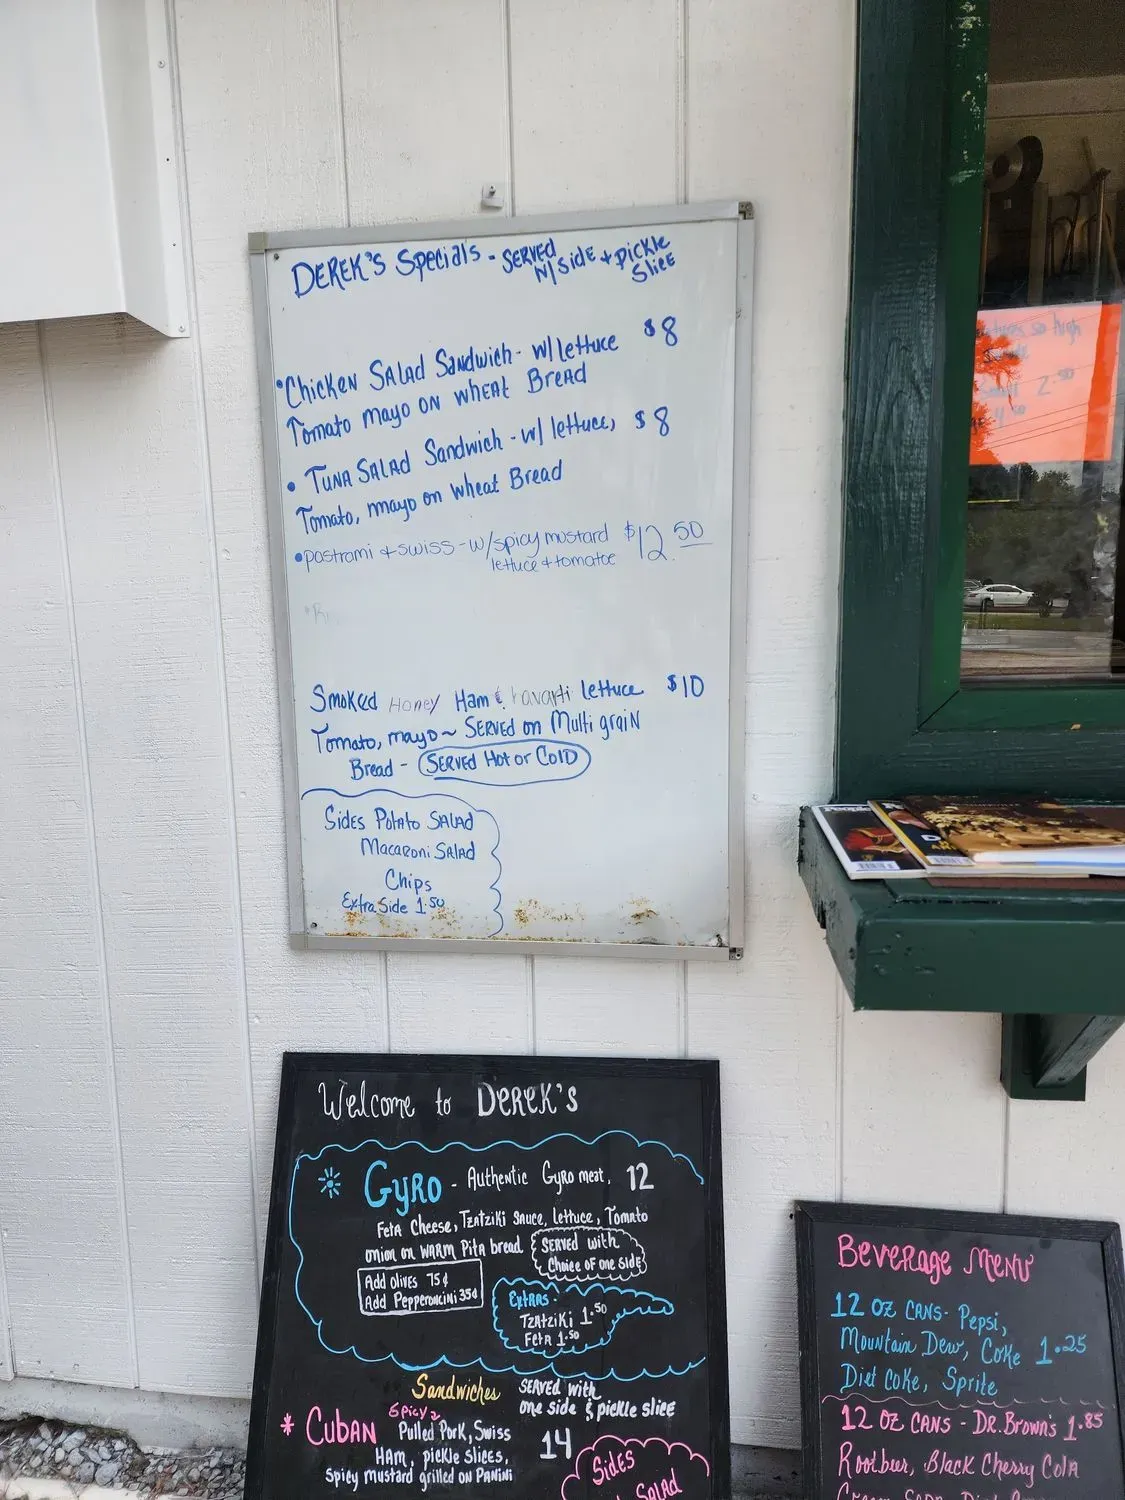 DEREK'S Specials - SERVED
W/ SIDE + PICKLE
SLICE
• CHICKEN SALAD SANDWICH - W/ lettuce $8
Tomato mayo ON WHEAT BREAD
• TUNA SALAD Sandwich - W/ lettuce, $8
Tomato, mayo on Wheat Bread
• pastrami + swiss - w/ spicy mustard $12.50
lettuce + tomatoe
Smoked Honey Ham & havarti lettuce $10
Tomato, mayo ~ SERVED on Multi graiN
Bread - SERVED Hot or Cold
Sides Potato SALAD
Macaroni SALAD
Chips
Extra Side 1.50
2.50
4.50
People
Welcome to DEREK'S
GYRO - Authentic Gyro meat, 12
Feta Cheese, Tzatziki Sauce, lettuce, Tomato
onion on WARM Pita bread
SERVED with
Choice of one side
Add olives 75¢
Add Pepperoncini 35¢
Extras -
Tzatziki 1.50
Feta 1.50
Sandwiches SERVED with
one side & pickle slice
* CUBAN Spicy Pulled Pork, Swiss 14
HAM, pickle slices,
spicy mustard grilled on PANINI
Sides
Salad
Beverage Menu
12 OZ CANS - Pepsi,
Mountain Dew, Coke 1.25
Diet Coke, Sprite
12 OZ CANS - DR. Brown's 1.85
Rootbeer, Black Cherry Cola